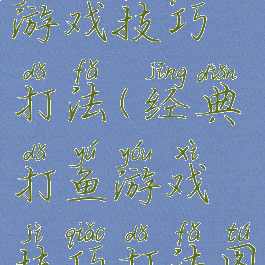 游戏技巧
dǎ fǎ jīng diǎn
打法(经典
dǎ yú yóu xì
打鱼游戏
jì qiǎo dǎ fǎ tú
技巧打法图